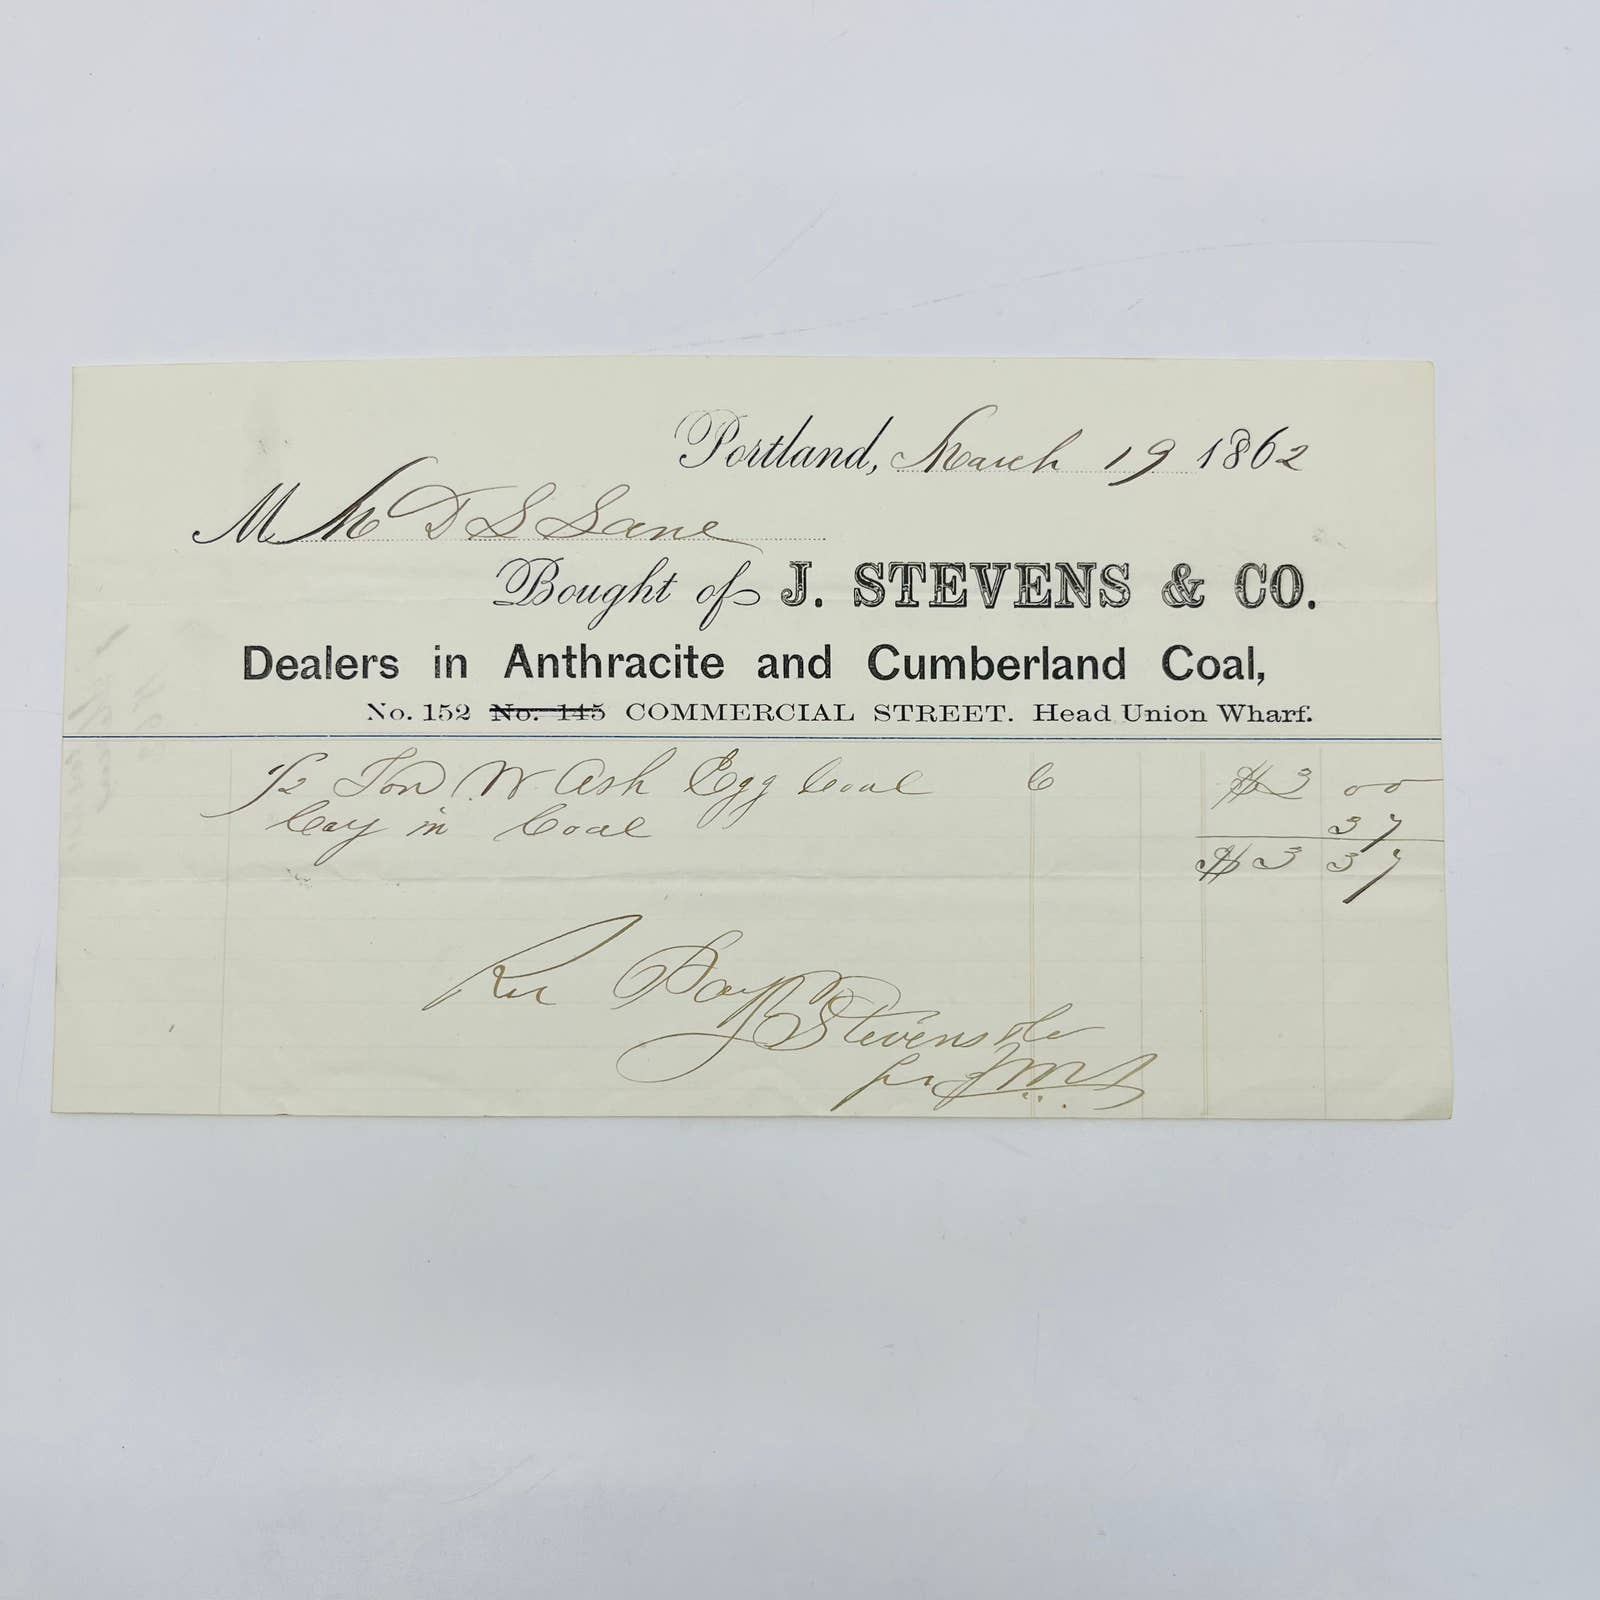 Portland, March 19 1862
M D S Lane
Bought of J. STEVENS & CO.
Dealers in Anthracite and Cumberland Coal,
No. 152 No. 145 COMMERCIAL STREET. Head Union Wharf.
1/2 Ton W Ash Egg Coal 6 $3 00
in Coal 37
$3 37
Rec Pay
J Stevens & Co